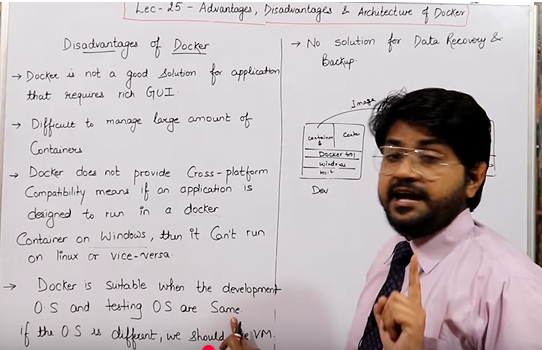 Lec-25 - Advantages, Disadvantages & Architecture of Docker
Disadvantages of Docker
→ Docker is not a good solution for application
that requires rich GUI.
→ Difficult to manage large amount of
Containers
→ Docker does not provide Cross-platform
Compatibility means if an application is
designed to run in a docker
Container on Windows, then it Can't run
on linux or vice-versa.
→ Docker is suitable when the development
OS and testing OS are Same
if the OS is different, we should VM.
→ No solution for Data Recovery &
Backup.
Image
Container
Docker
Windows
Dev